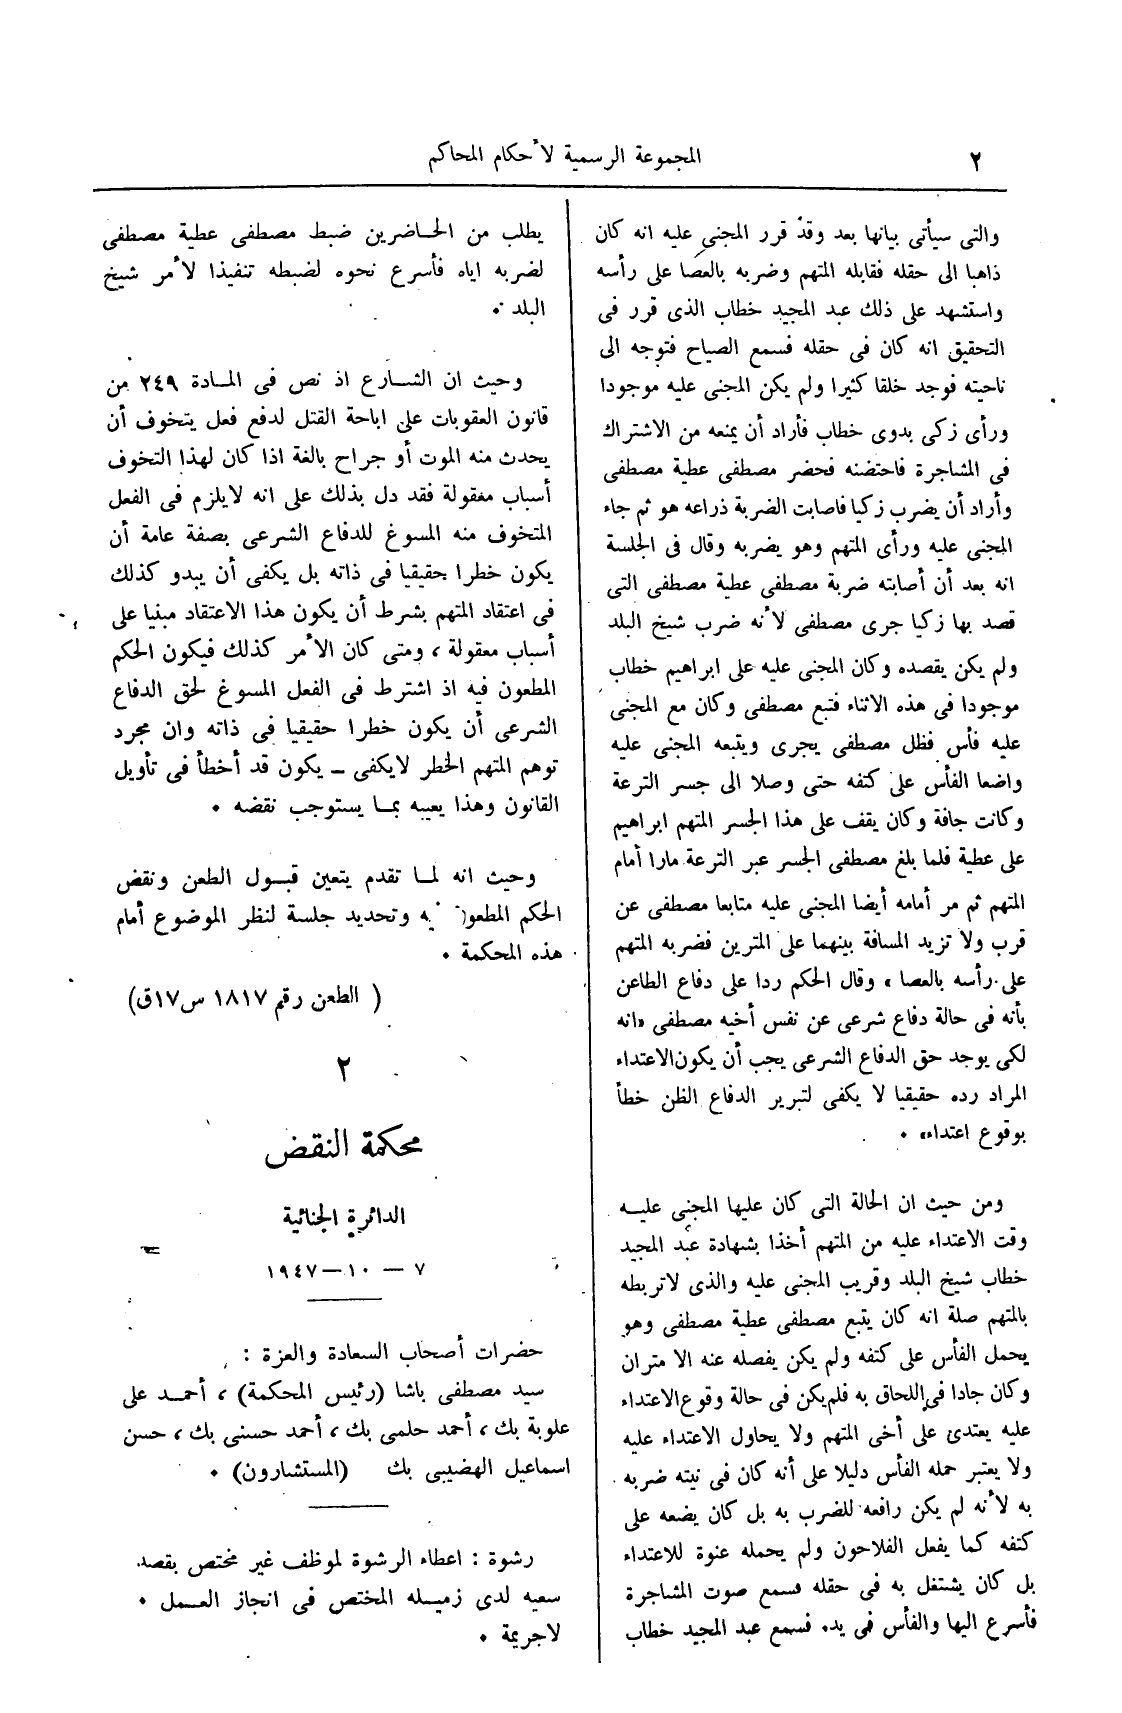 ٢
المجموعة الرسمية لأحكام المحاكم
والتى سيأتى بيانها بعد وقد قرر المجنى عليه انه كان
ذاهبا الى حقله فقابله المتهم وضربه بالعصا على رأسه
واستشهد على ذلك عبد المجيد خطاب الذى قرر فى
التحقيق انه كان فى حقله فسمع الصياح فتوجه الى
ناحيته فوجد خلقا كثيرا ولم يكن المجنى عليه موجودا
ورأى زكى بدوى خطاب فأراد أن يمنعه من الاشتراك
فى المشاجرة فاحتضنه فحضر مصطفى عطية مصطفى
وأراد أن يضرب زكيا فاصابت الضربة ذراعه هو ثم جاء
المجنى عليه ورأى المتهم وهو يضربه وقال فى الجلسة
انه بعد أن أصابته ضربة مصطفى عطية مصطفى التى
قصد بها زكيا جرى مصطفى لأنه ضرب شيخ البلد
ولم يكن يقصده وكان المجنى عليه على ابراهيم خطاب
موجودا فى هذه الاثناء فتبع مصطفى وكان مع المجنى
عليه فأس فظل مصطفى يجرى ويتبعه المجنى عليه
واضعا الفأس على كتفه حتى وصلا الى جسر الترعة
وكانت جافة وكان يقف على هذا الجسر المتهم ابراهيم
على عطية فلما بلغ مصطفى الجسر عبر الترعة مارا أمام
المتهم ثم مر أمامه أيضا المجنى عليه متابعا مصطفى عن
قرب ولا تزيد المسافة بينهما على المترين فضربه المتهم
على رأسه بالعصا » وقال الحكم ردا على دفاع الطاعن
بأنه فى حالة دفاع شرعى عن نفس أخيه مصطفى «انه
لكى يوجد حق الدفاع الشرعى يجب أن يكون الاعتداء
المراد رده حقيقيا لا يكفى لتبرير الدفاع الظن خطأ
بوقوع اعتداء» .
ومن حيث ان الحالة التى كان عليها المجنى عليه
وقت الاعتداء عليه من المتهم أخذا بشهادة عبد المجيد
خطاب شيخ البلد وقريب المجنى عليه والذى لاتربطه
بالمتهم صلة انه كان يتبع مصطفى عطية مصطفى وهو
يحمل الفأس على كتفه ولم يكن يفصله عنه الا متران
وكان جادا فى اللحاق به فلم يكن فى حالة وقوع الاعتداء
عليه يعتدى على أخى المتهم ولا يحاول الاعتداء عليه
ولا يعتبر حمله الفأس دليلا على أنه كان فى نيته ضربه
به لأنه لم يكن رافعه للضرب به بل كان يضعه على
كتفه كما يفعل الفلاحون ولم يحمله عنوة للاعتداء
بل كان يشتغل به فى حقله فسمع صوت المشاجرة
فأسرع اليها والفأس فى يده فسمع عبد المجيد خطاب
يطلب من الحاضرين ضبط مصطفى عطية مصطفى
لضربه اياه فأسرع نحوه لضبطه تنفيذا لأمر شيخ
البلد .
وحيث ان الشارع اذ نص فى المادة ٢٤٩ من
قانون العقوبات على اباحة القتل لدفع فعل يتخوف أن
يحدث منه الموت أو جراح بالغة اذا كان لهذا التخوف
أسباب معقولة فقد دل بذلك على انه لايلزم فى الفعل
المتخوف منه المسوغ للدفاع الشرعى بصفة عامة أن
يكون خطرا حقيقيا فى ذاته بل يكفى أن يبدو كذلك
فى اعتقاد المتهم بشرط أن يكون هذا الاعتقاد مبنيا على
أسباب معقولة ، ومتى كان الأمر كذلك فيكون الحكم
المطعون فيه اذ اشترط فى الفعل المسوغ لحق الدفاع
الشرعى أن يكون خطرا حقيقيا فى ذاته وان مجرد
توهم المتهم الخطر لايكفى ـ يكون قد أخطأ فى تأويل
القانون وهذا يعيبه بما يستوجب نقضه .
وحيث انه لما تقدم يتعين قبول الطعن ونقض
الحكم المطعون فيه وتحديد جلسة لنظر الموضوع أمام
هذه المحكمة .
( الطعن رقم ١٨١٧ س ١٧ق)
٢
محكمة النقض
الدائرة الجنائية
٧ — ١٠ — ١٩٤٧
حضرات أصحاب السعادة والعزة :
سيد مصطفى باشا (رئيس المحكمة) ، أحمد على
علوبة بك ، أحمد حلمى بك ، أحمد حسنى بك ، حسن
اسماعيل الهضيبى بك (المستشارون) .
رشوة : اعطاء الرشوة لموظف غير مختص بقصد
سعيه لدى زميله المختص فى انجاز العمل .
لاجريمة .